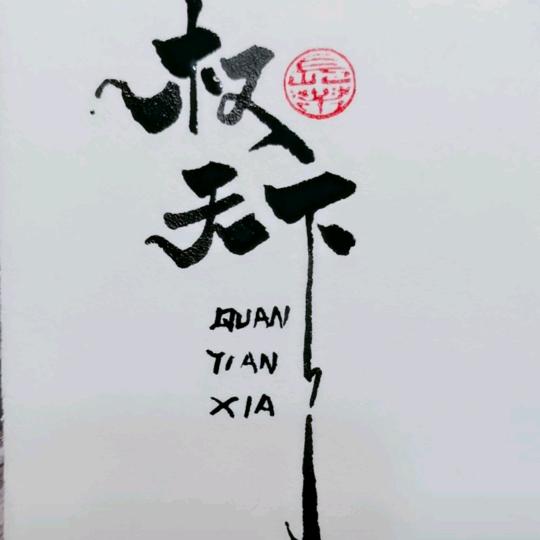 权
天下
QUAN
TIAN
XIA